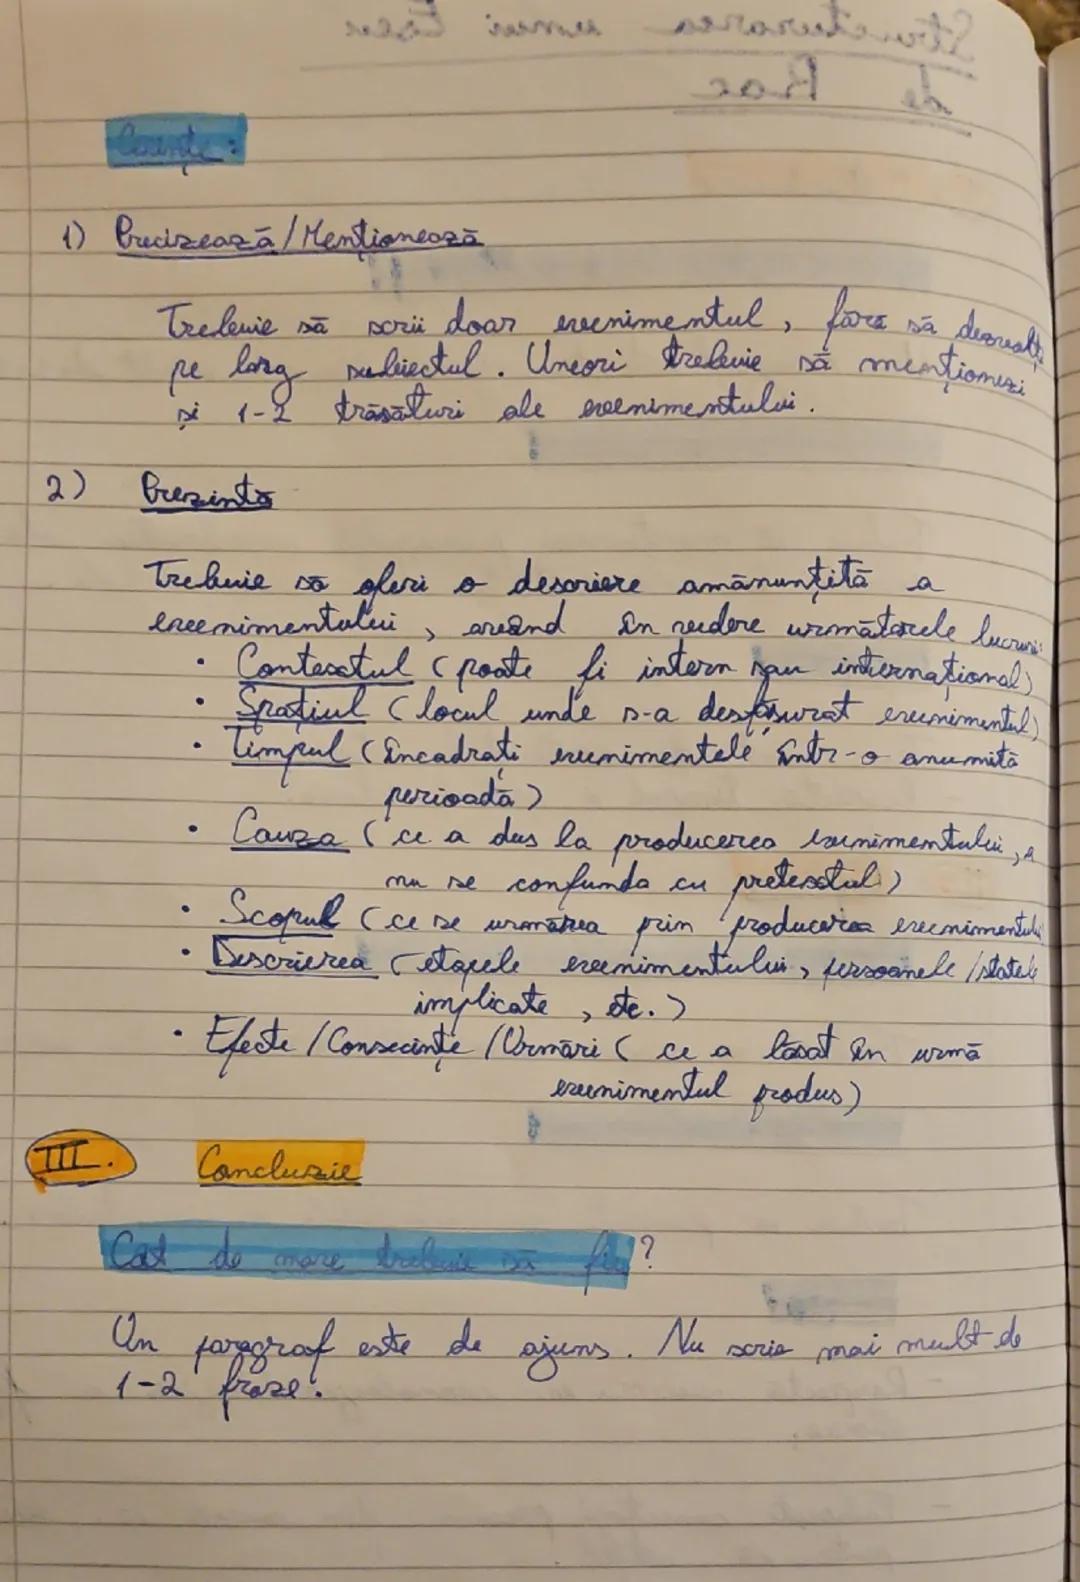 Cerințe:
1) Precizează/Menționează
Trebuie să scrii doar evenimentul, fără să dezvolți
pe larg subiectul. Uneori trebuie să menționezi
și 1-2 trăsături ale evenimentului.
2) Prezintă
Trebuie să oferi o descriere amănunțită a
evenimentului, având în vedere următoarele lucruri:
• Contextul (poate fi intern sau internațional)
• Spațiul (locul unde s-a desfășurat evenimentul)
• Timpul (încadrați evenimentele într-o anumită
perioadă)
• Cauza (ce a dus la producerea evenimentului, a
nu se confunda cu pretextul)
• Scopul (ce se urmărea prin producerea evenimentului
• Descrierea (etapele evenimentului, persoanele/statele
implicate, etc.)
• Efecte/Consecințe/Urmări (ce a lăsat în urmă
evenimentul produs)
III. Concluzie
Cât de mare trebuie să fie?
Un paragraf este de ajuns. Nu scrie mai mult de
1-2 fraze.
Structurarea unui Eseu
de Bac